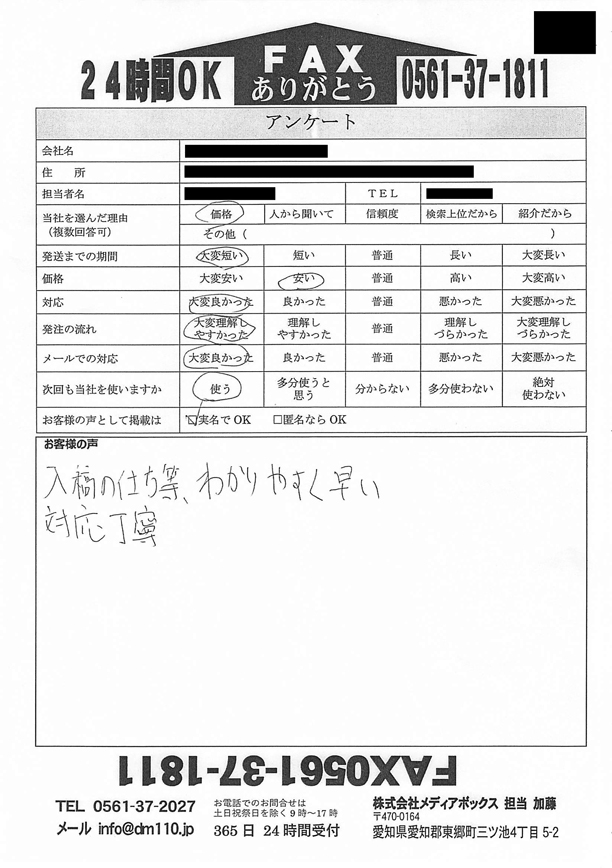 24時間OK
FAX
ありがとう
0561-37-1811
アンケート
会社名
住　所
担当者名 TEL
当社を選んだ理由 価格 人から聞いて 信頼度 検索上位だから 紹介だから
（複数回答可） その他（ ）
発送までの期間 大変短い 短い 普通 長い 大変長い
価格 大変安い 安い 普通 高い 大変高い
対応 大変良かった 良かった 普通 悪かった 大変悪かった
発注の流れ 大変理解し 理解し 普通 理解し 大変理解し
やすかった やすかった づらかった づらかった
メールでの対応 大変良かった 良かった 普通 悪かった 大変悪かった
次回も当社を使いますか 使う 多分使うと 分からない 多分使わない 絶対
思う 使わない
お客様の声として掲載は ☑実名でOK □匿名ならOK
お客様の声
入稿の仕方等、わかりやすく早い
対応丁寧
FAX0561-37-1811
TEL 0561-37-2027 お電話でのお問合せは 株式会社メディアボックス 担当 加藤
土日祝祭日を除く9時～17時 〒470-0164
メール info@dm110.jp 365日 24時間受付 愛知県愛知郡東郷町三ツ池4丁目 5-2